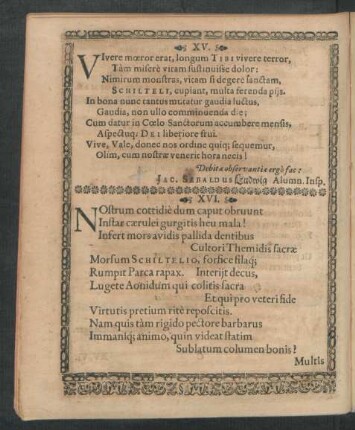 XV.
VIvere mœror erat, longum TIBI vivere terror,
Tàm miserè vitam sustinuisse dolor:
Nimirum monstras, vitam si degere sanctam,
SCHILTELI, cupiant, multa ferenda pijs.
In bona nunc tantus mutatur gaudia luctus,
Gaudia, non ullo comminuenda die;
Cum datur in Cœlo Sanctorum accumbere mensis,
Aspectuq; DEI liberiore frui.
Vive, Vale, donec nos ordine quiq; sequemur,
Olim, cum nostræ venerit hora necis!
Debita observantia ergò fac:
JAC. SEBALDUS Ludwig Alumn. Insp.
XVI.
NOstrum cottidiè dum caput obruunt
Instar cærulei gurgitis heu mala!
Infert mors avidis pallida dentibus
Cultori Themidis sacræ
Morsum SCHILTELIO, forfice filaq;
Rumpit Parca rapax. Interijt decus,
Lugete Aonidum qui colitis sacra
Et qui pro veteri fide
Virtutis pretium ritè reposcitis.
Nam quis tàm rigido pectore barbarus
Immaniq; animo, quin videat statim
Sublatum columen bonis?
Multis